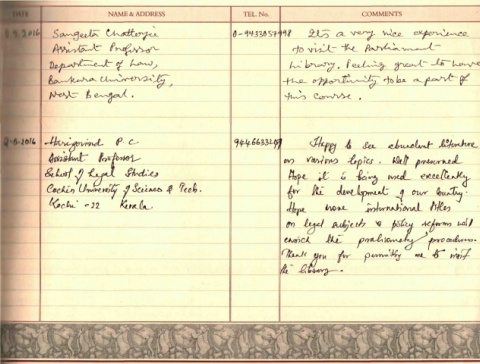 DATE NAME & ADDRESS TEL. No. COMMENTS
8.8.2016 Sangeeta Chatterjee 0-9433057998 It's a very nice experience
Assistant Professor to visit the Parliament
Department of Law, Library. Feeling great to have
Bankura University, the opportunity to be a part of
West Bengal. this course.
-8-2016 Harigovind P.C. Happy to see abundant literature
Assistant Professor on various topics. Well preserved
School of Legal Studies Hope it is being used excellently
Cochin University of Science & Tech. for the development of our Country.
Kochi -22 Kerala Hope more international titles
on legal subjects & policy reforms will
enrich the procedures.
Thank you for permitting me to visit
the library.